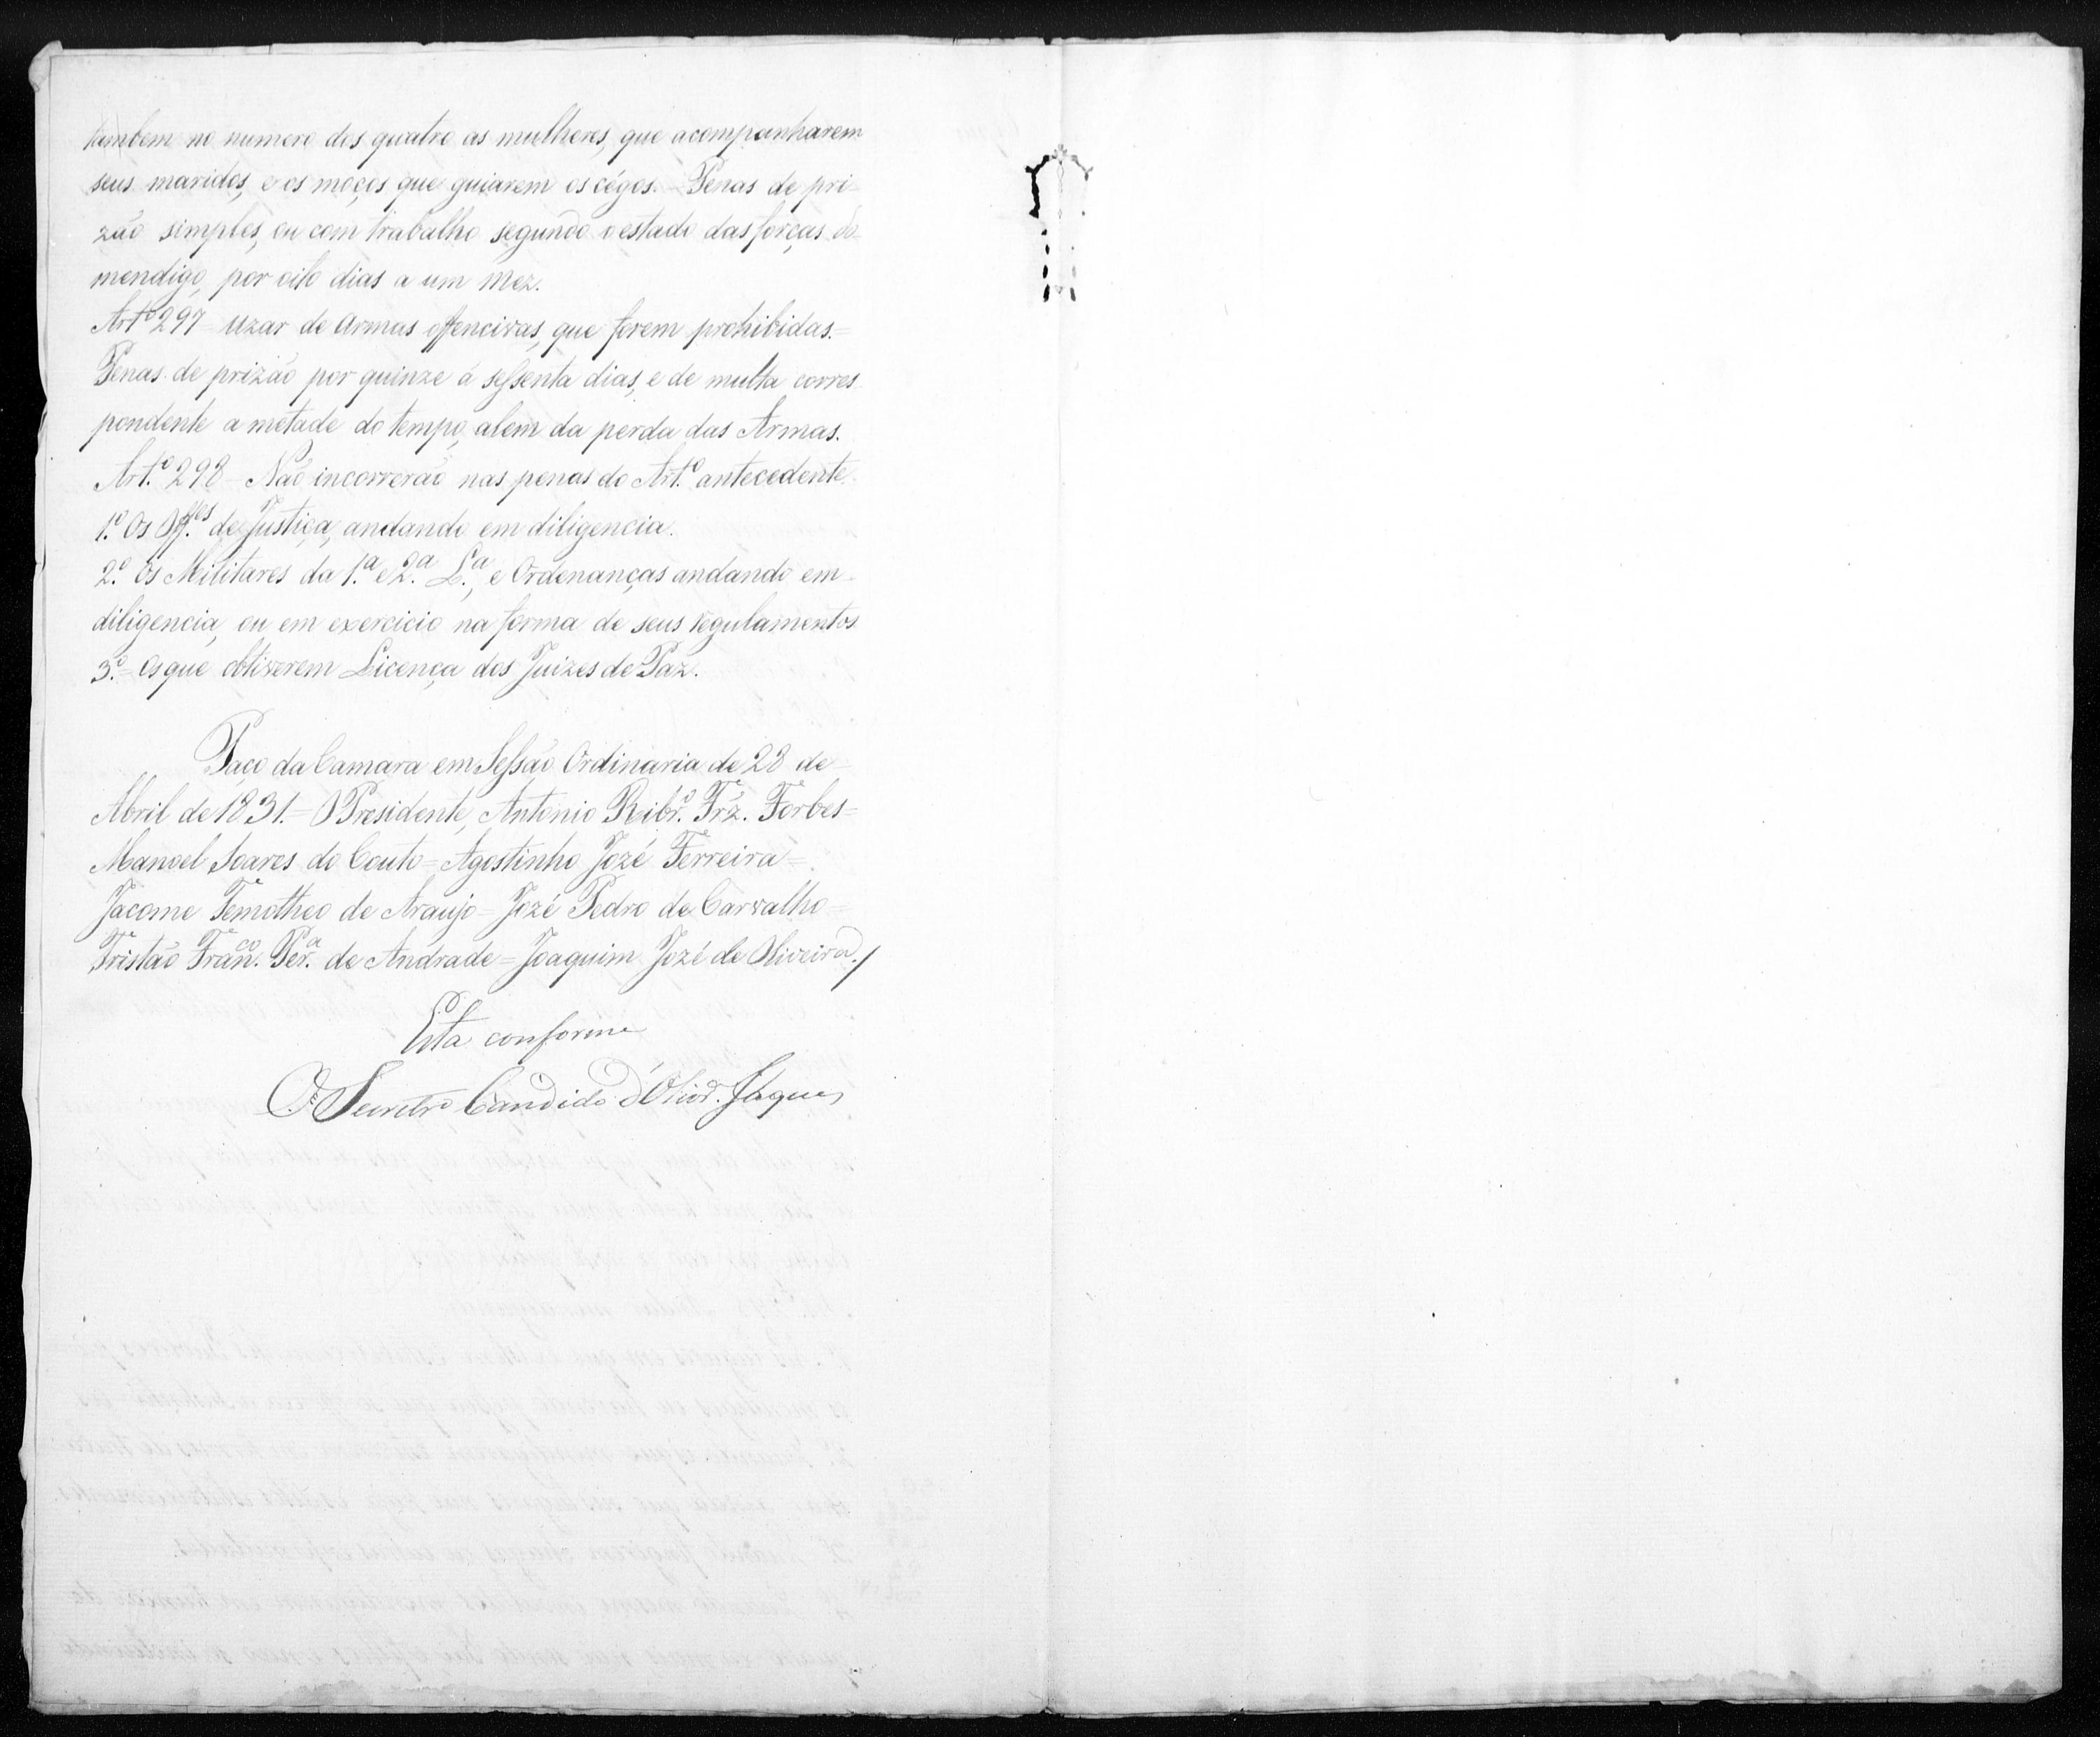 tambem no numero dos quatro as mulheres, que acompanharem
seus maridos, e os moços que guiarem os cégos. Penas de pri-
zão simples, ou com trabalho segundo o estado das forças do
mendigo, por oito dias a um mez.
Art.º 297 Uzar de armas offencivas, que forem prohibidas.=
Penas de prizão por quinze á sessenta dias, e de multa corres
pondente a metade do tempo, alem da perda das Armas.
Art.º 298 - Não incorrerão nas penas do Art.º antecedente.
1.º Os Off.es de Justiça, andando em diligencia.
2.º Os Militares da 1.ª e 2.ª L.ª, e Ordenanças andando em
diligencia, ou em exercicio na forma de seus regulamentos
3.º= Os que obtiverem Licença dos Juizes de Paz.
Paço da Camara em Sessão Ordinaria de 28 de
Abril de 1831.= O Presidente, Antonio Ribr.º Frz. Forbes=
Manoel Soares do Couto= Agostinho Jozé Ferreira=
Jacome Temotheo de Araujo= Jozé Pedro de Carvalho=
Tristão Fran.co Per.ª de Andrade= Joaquim Jozé de Oliveira./
Esta conforme
O Secretr.º Candido d'Olivr.ª